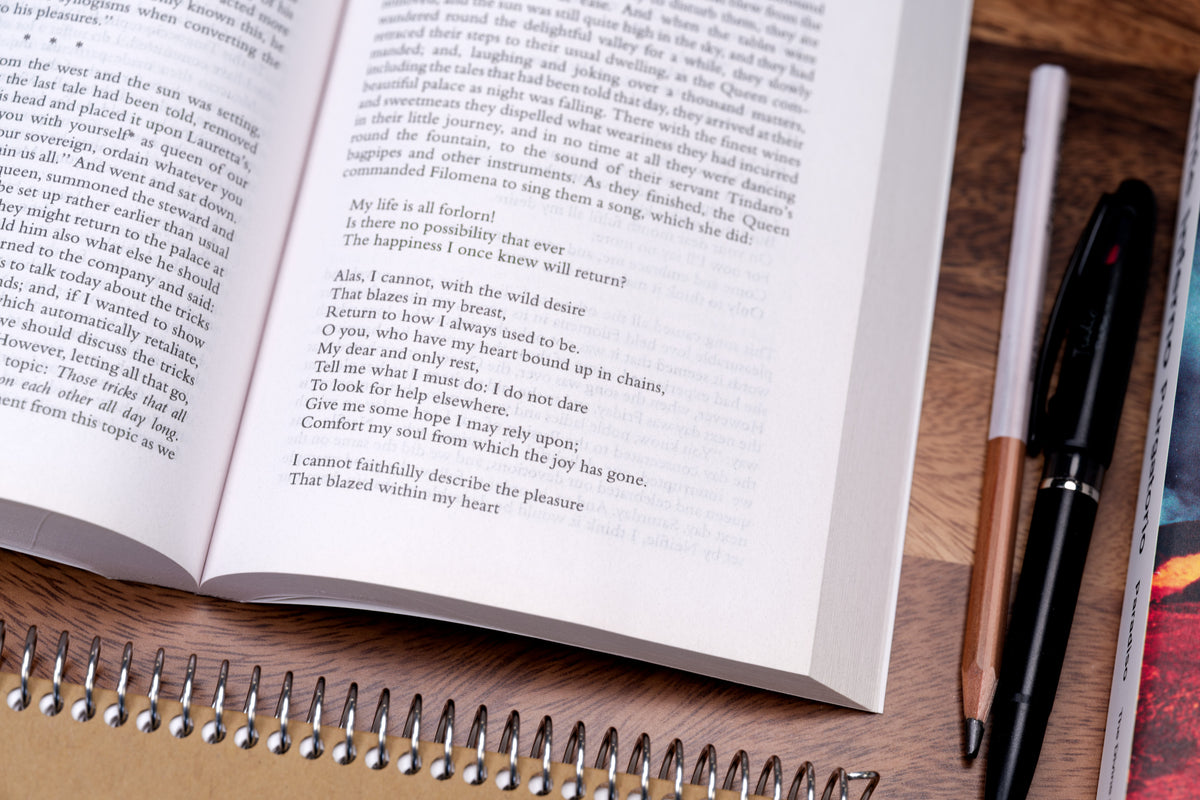 acted more
only known this, he
syllogisms when converting the
to his pleasures."
* * *
om the west and the sun was setting,
the last tale had been told, removed
is head and placed it upon Lauretta's,
you with yourself* as queen of our
our sovereign, ordain whatever you
in us all." And went and sat down.
queen, summoned the steward and
be set up rather earlier than usual
hey might return to the palace at
ld him also what else he should
rned to the company and said:
s to talk today about the tricks
nds; and, if I wanted to show
which automatically retaliate,
we should discuss the tricks
However, letting all that go,
topic: Those tricks that all
on each other all day long.
ent from this topic as we
ease. And when the tables were
removed, and the sun was still quite high in the sky, and they had
wandered round the delightful valley for a while, they slowly
retraced their steps to their usual dwelling, as the Queen com-
manded; and, laughing and joking over a thousand matters,
including the tales that had been told that day, they arrived at their
beautiful palace as night was falling. There with the finest wines
and sweetmeats they dispelled what weariness they had incurred
in their little journey, and in no time at all they were dancing
round the fountain, to the sound of their servant Tindaro's
bagpipes and other instruments. As they finished, the Queen
commanded Filomena to sing them a song, which she did:
My life is all forlorn!
Is there no possibility that ever
The happiness I once knew will return?
Alas, I cannot, with the wild desire
That blazes in my breast,
Return to how I always used to be.
O you, who have my heart bound up in chains,
My dear and only rest,
Tell me what I must do: I do not dare
To look for help elsewhere.
Give me some hope I may rely upon;
Comfort my soul from which the joy has gone.
I cannot faithfully describe the pleasure
That blazed within my heart
Purgatorio
Paradiso